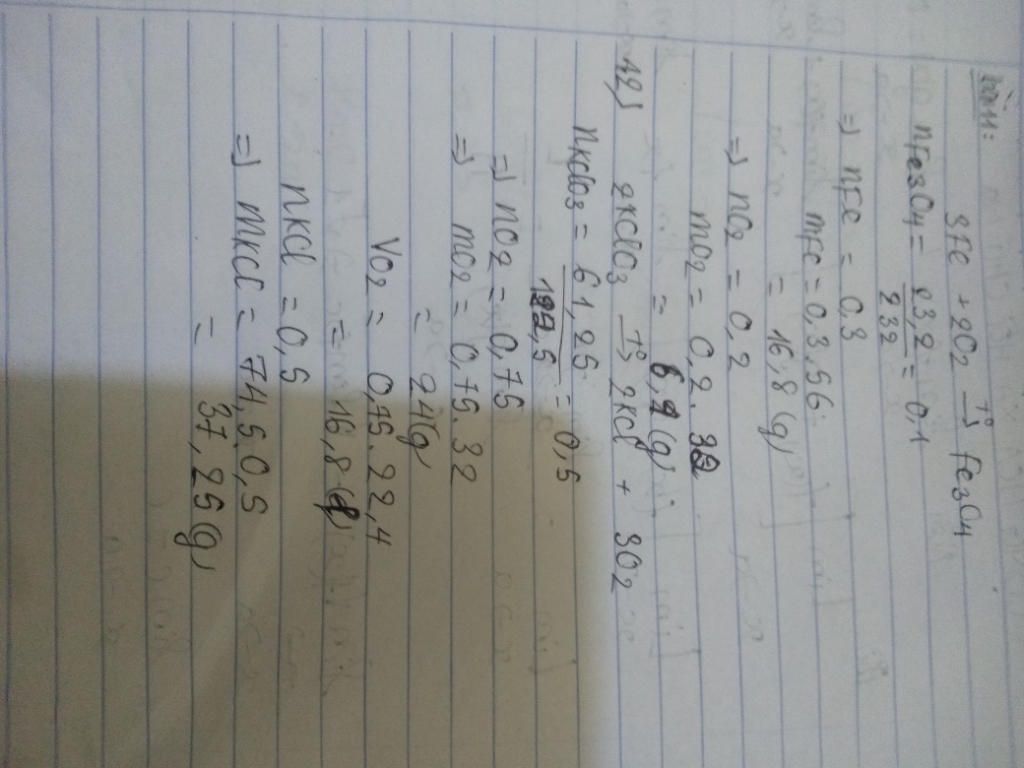 Bài 11:
3Fe + 2O2 t°→ Fe3O4
nFe3O4 = 23,2/232 = 0,1
=) nFe = 0,3
mFe = 0,3.56
= 16,8 (g)
=) nO2 = 0,2
mO2 = 0,2.32
= 6,4 (g)
12) 2KClO3 t°→ 2KCl + 3O2
nKClO3 = 61,25/122,5 = 0,5
=) nO2 = 0,75
=) mO2 = 0,75.32
= 24(g)
VO2 = 0,75.22,4
= 16,8 (l)
nKCl = 0,5
=) mKCl = 74,5.0,5
= 37,25(g)